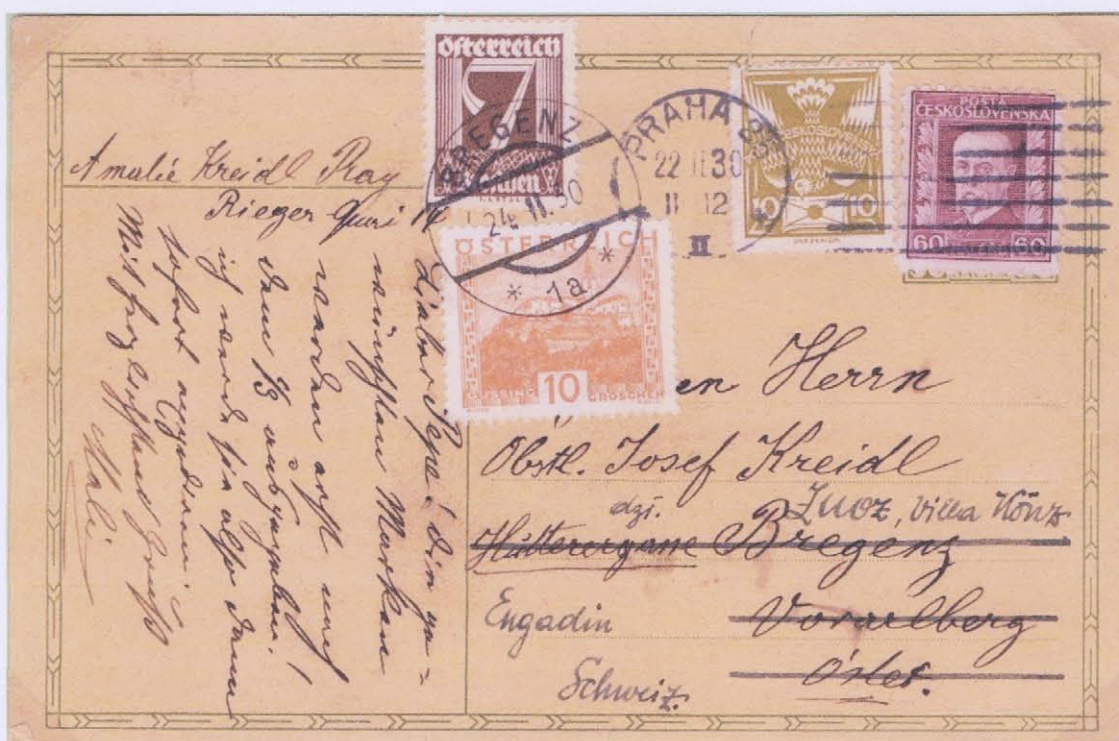 Österreich
7
Groschen
BREGENZ
24. II. 30
* 1a *
ÖSTERREICH
GÜSSING 10 GROSCHEN
PRAHA
22 II 30
11 12
II
ČESKOSLOVENSKÁ
10 10
POŠTA
ČESKOSLOVENSKÁ
60 60
Amalie Kreidl Prag
Rieger Quai 14
Lieber Pepi! Die ge-
wünschten Marken
werden erst mit
dem 1/3 ausgegeben!
ich werde sie also dann
sofort
Mit herzlichsten Grüßen
Mali
en Herrn
Obstl. Josef Kreidl
dzt. Zuoz, Villa Könz
Hütterergasse Bregenz
Engadin Vorarlberg
Schweiz. Öster.